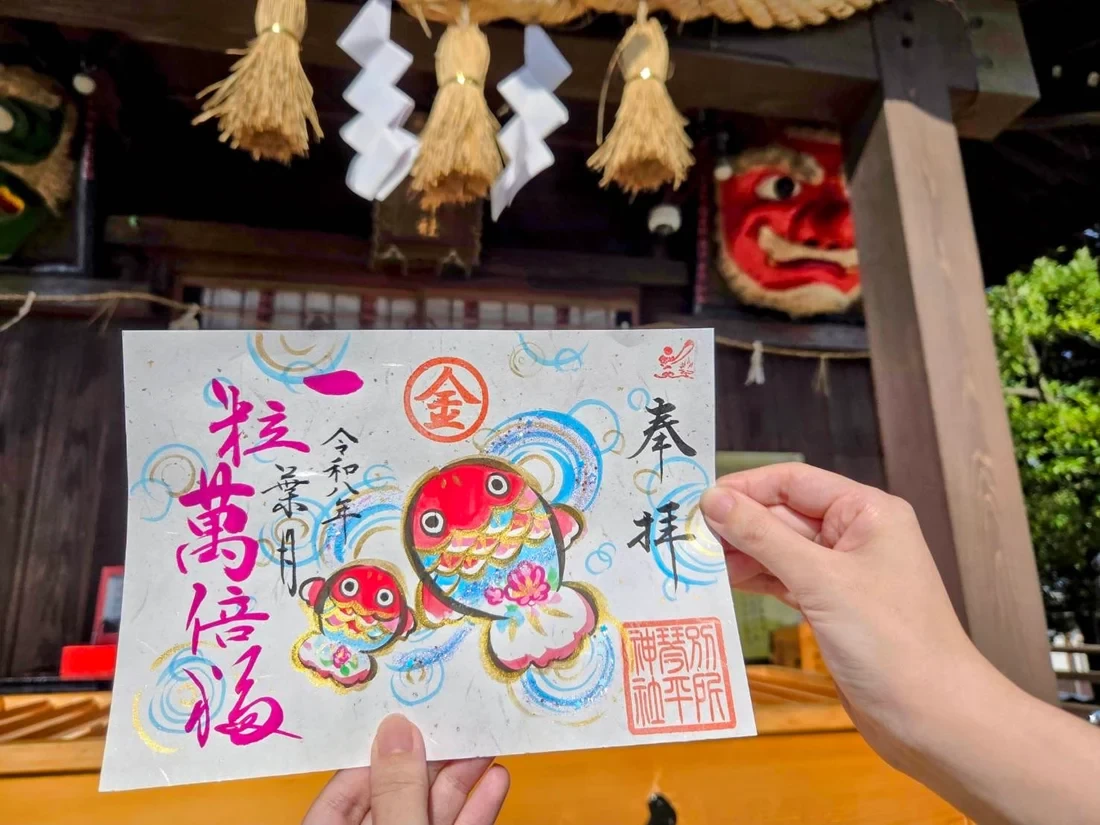 奉拝
金
別所
琴平
神社
令和八年
葉月
一粒萬倍福